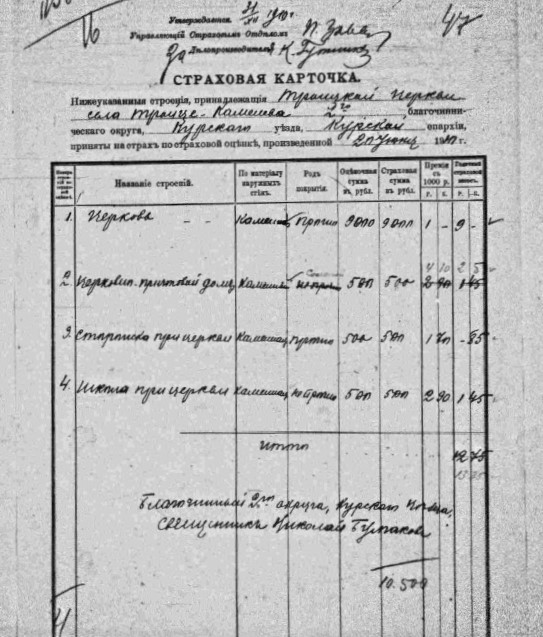 47
Утверждается 31/XII 1910 г.
Управляющій Страховымъ Отдѣломъ
За Дѣлопроизводителя
СТРАХОВАЯ КАРТОЧКА.
Нижеуказанныя строенія, принадлежащія Троицкой церкви
села Троице-Каменева 2го благочинни-
ческаго округа, Курскаго уѣзда, Курской епархіи,
приняты на страхъ по страховой оцѣнкѣ, произведенной 20 Іюня 1910 г.
Названіе строеній. По матеріалу наружныхъ стѣнъ. Родъ покрытія. Оцѣночная сумма въ рубл. Страховая сумма въ рубл. Премія съ 1000 р. Годичный страховой взносъ.
Р. К. Р. К.
1. Церковь - - Камен 9000 9000 1 - 9 -
4 10 2 5
2. Церковно-причтовой домъ Камен 500 500 2 90 1 45
3. Сторожка при церкви Камен 500 500 1 70 - 85
4. Школа при церкви Камен 500 500 2 90 1 45
Итого 12 75
13 35
Благочинный 2го округа, Курскаго уѣзда,
священникъ Николай Булгаковъ
10.500